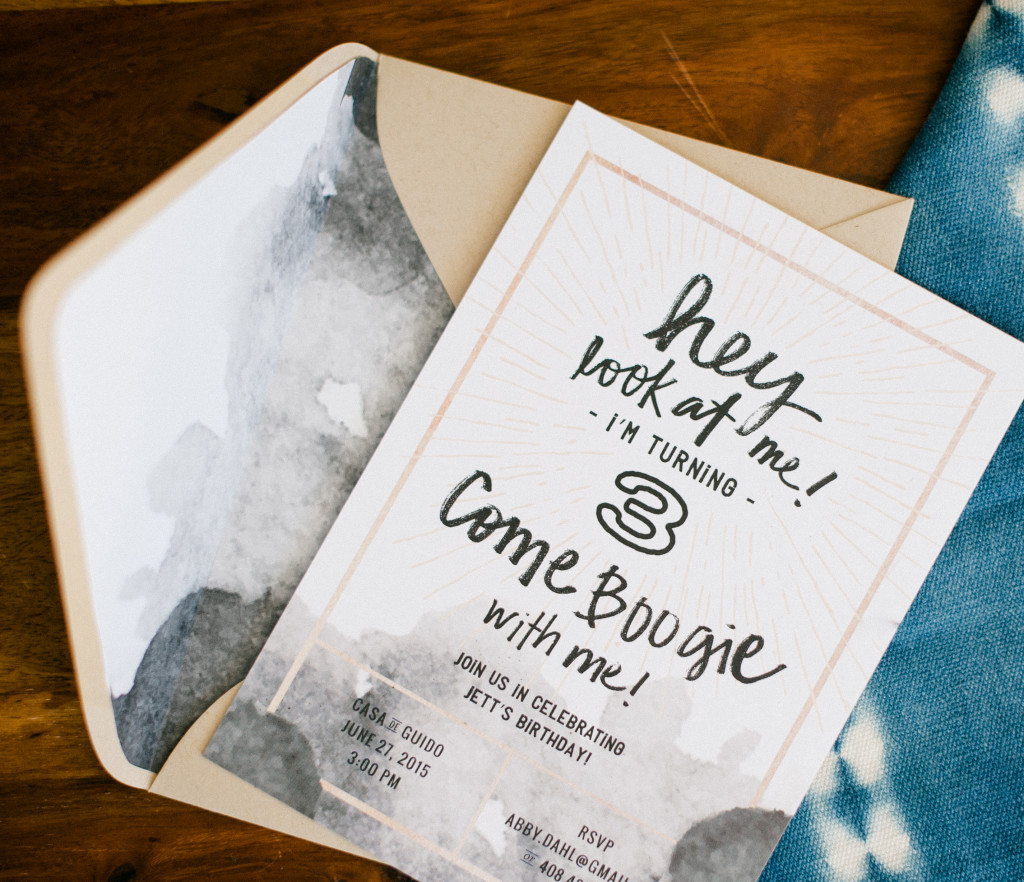 hey
look at me!
- I'M TURNING -
3
Come Boogie
with me!
JOIN US IN CELEBRATING
JETT'S BIRTHDAY!
CASA DE GUIDO
JUNE 27, 2015
3:00 PM
RSVP
ABBY.DAHL@GMAI
OR 408